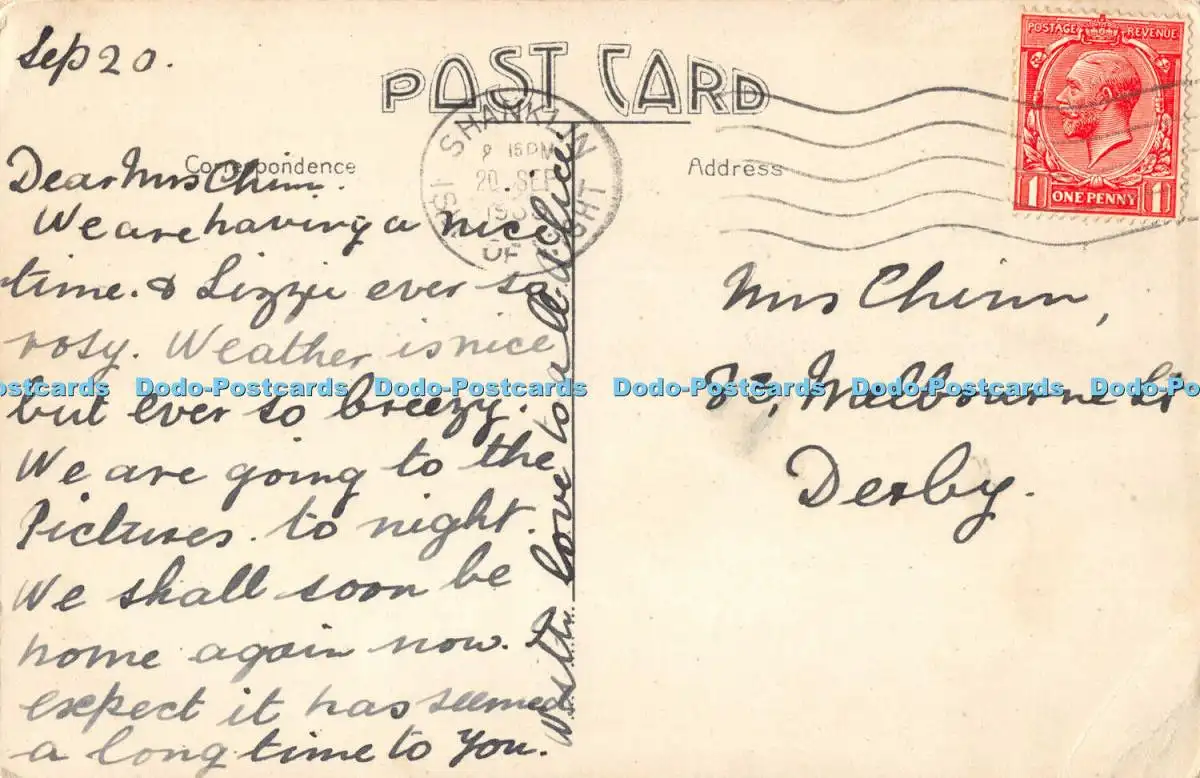 Sep 20.
POST CARD
POSTAGE REVENUE
1 ONE PENNY 1
SHANKLIN
15 PM
20 SEP
ISLE OF WIGHT
Correspondence
Address
Dear Mrs Chinn.
We are having a nice
time. & Lizzie ever so
rosy. Weather is nice
but ever so breezy.
We are going to the
Pictures. to night.
We shall soon be
home again now. I
expect it has seemed
a long time to You.
With love to all
Mrs Chinn,
Melbourne St
Derby.
Dodo-Postcards Dodo-Postcards Dodo-Postcards Dodo-Postcards Dodo-Postcards